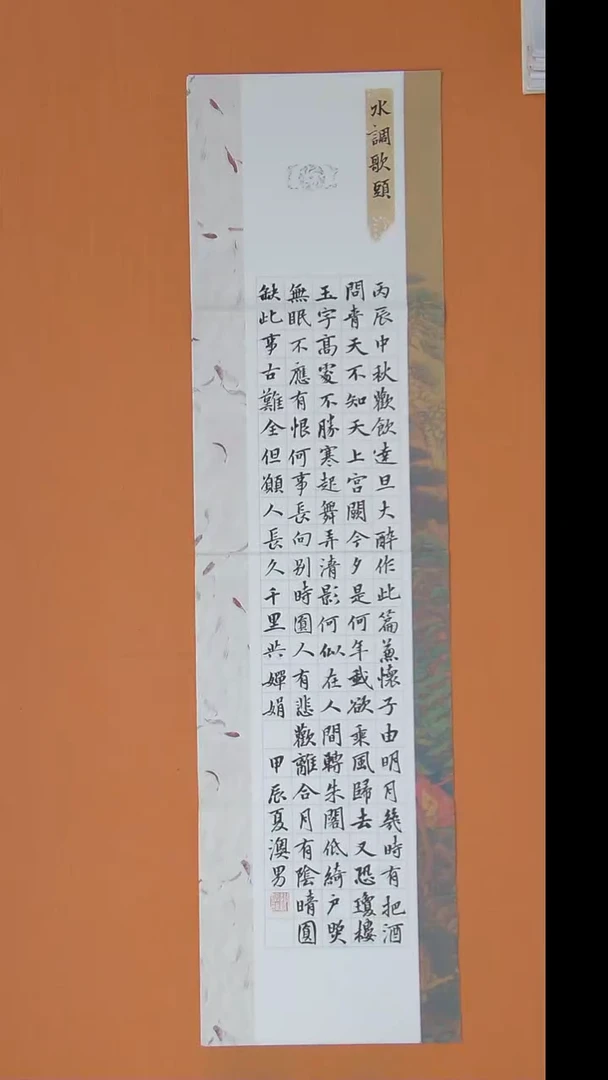 水調歌頭
丙辰中秋歡飲達旦大醉作此篇兼懷子由明月幾時有把酒
問青天不知天上宮闕今夕是何年我欲乘風歸去又恐瓊樓
玉宇高處不勝寒起舞弄清影何似在人間轉朱閣低綺戶照
無眠不應有恨何事長向別時圓人有悲歡離合月有陰晴圓
缺此事古難全但願人長久千里共嬋娟 甲辰夏澳男